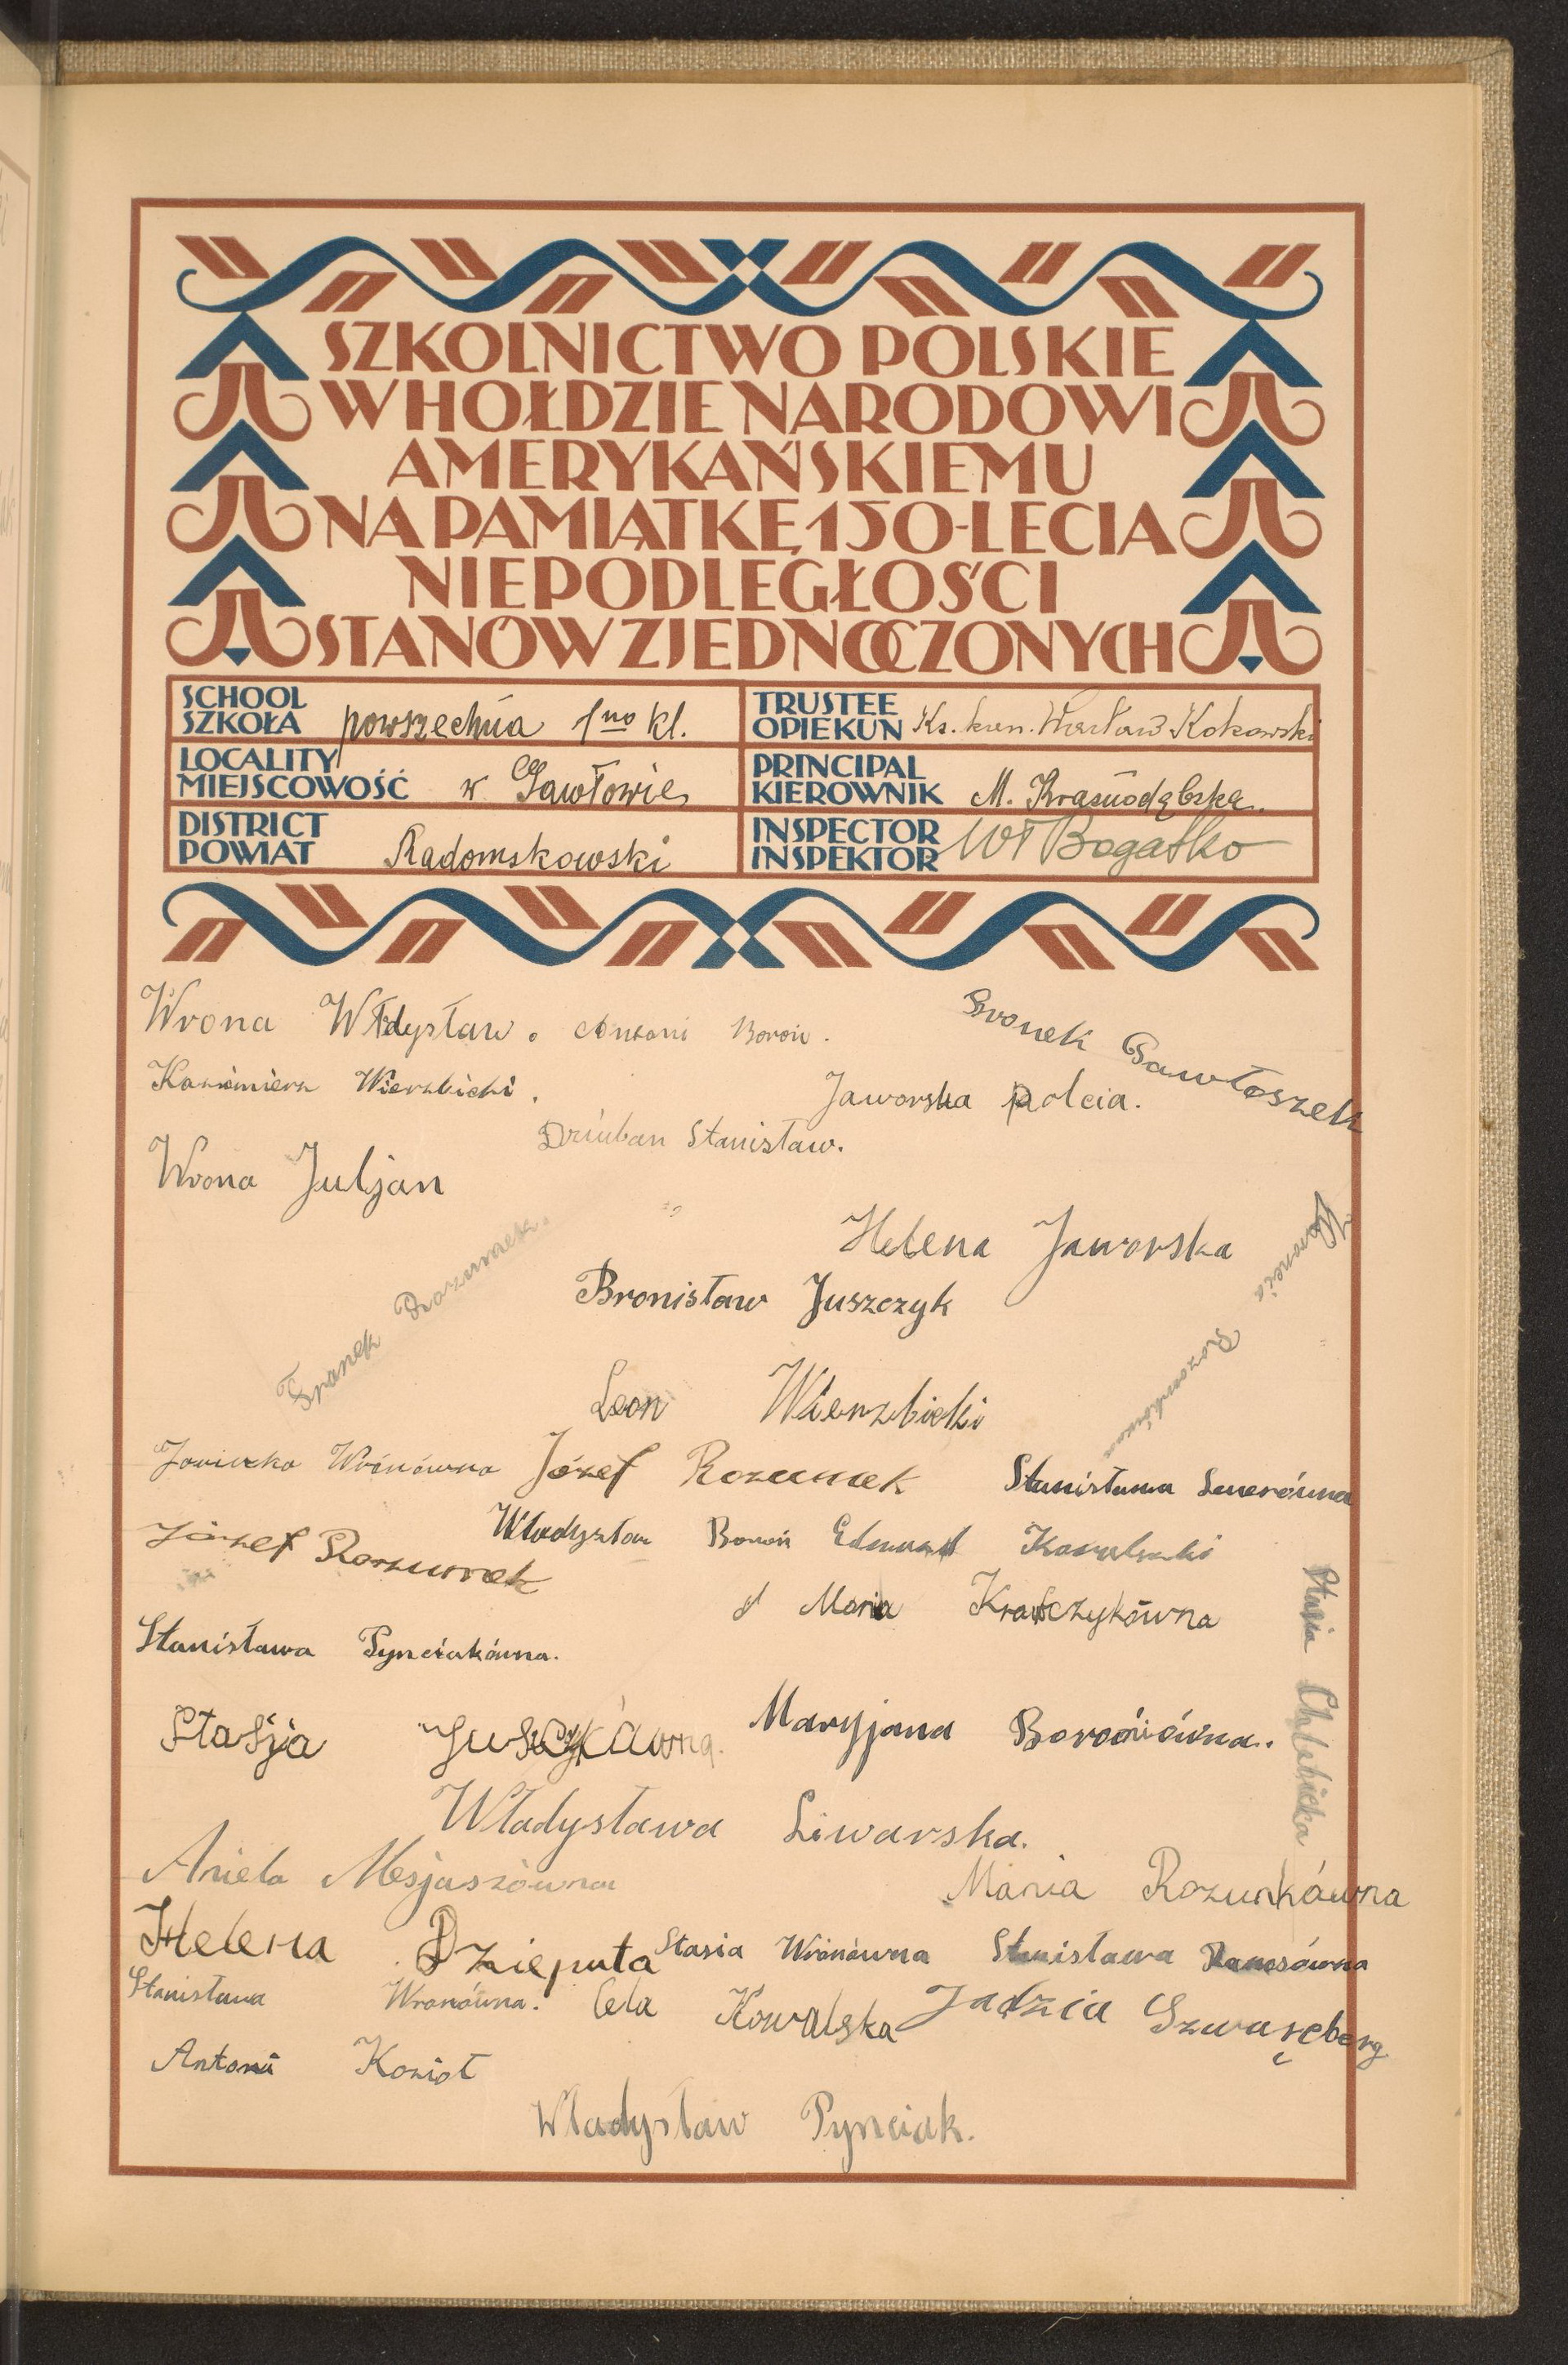 SZKOLNICTWO POLSKIE
W HOŁDZIE NARODOWI
AMERYKAŃSKIEMU
NA PAMIĄTKĘ 150-LECIA
NIEPODLEGŁOŚCI
STANÓW ZJEDNOCZONYCH
SCHOOL
SZKOŁA powszechna 1no kl.
TRUSTEE
OPIEKUN Ks. kan. Wacław Kokowski
LOCALITY
MIEJSCOWOŚĆ w Gawłowie
PRINCIPAL
KIEROWNIK M. Krasnodębska.
DISTRICT
POWIAT Radomskowski
INSPECTOR
INSPEKTOR Wł Bogatko
Wrona Włdysław. Antoni Boroń.
Bronek Gawłoszek
Kazimierz Wierzbicki.
Jaworska Polcia.
Dziuban Stanisław.
Wrona Juljan
Helena Jaworska
Franek Rozumek.
Bronisław Juszczyk
Leon Wierzbicki
Wronówna Józef Rozumek Stanisława
Józef Rozumek
Władysław Boroń Edmund Kowalski
Maria Krawczykówna
Stanisława Pynciakówna.
Stasia
Stasja
Maryjana
Władysława Liwarska.
Aniela Mesjaszówna
Mania Rozumkówna
Helena Dzieputa Stasia Wronówna Stanisława
Stanisława Wronówna. Cela Kowalska Jadzia
Antoni Kozioł
Władysław Pynciak.